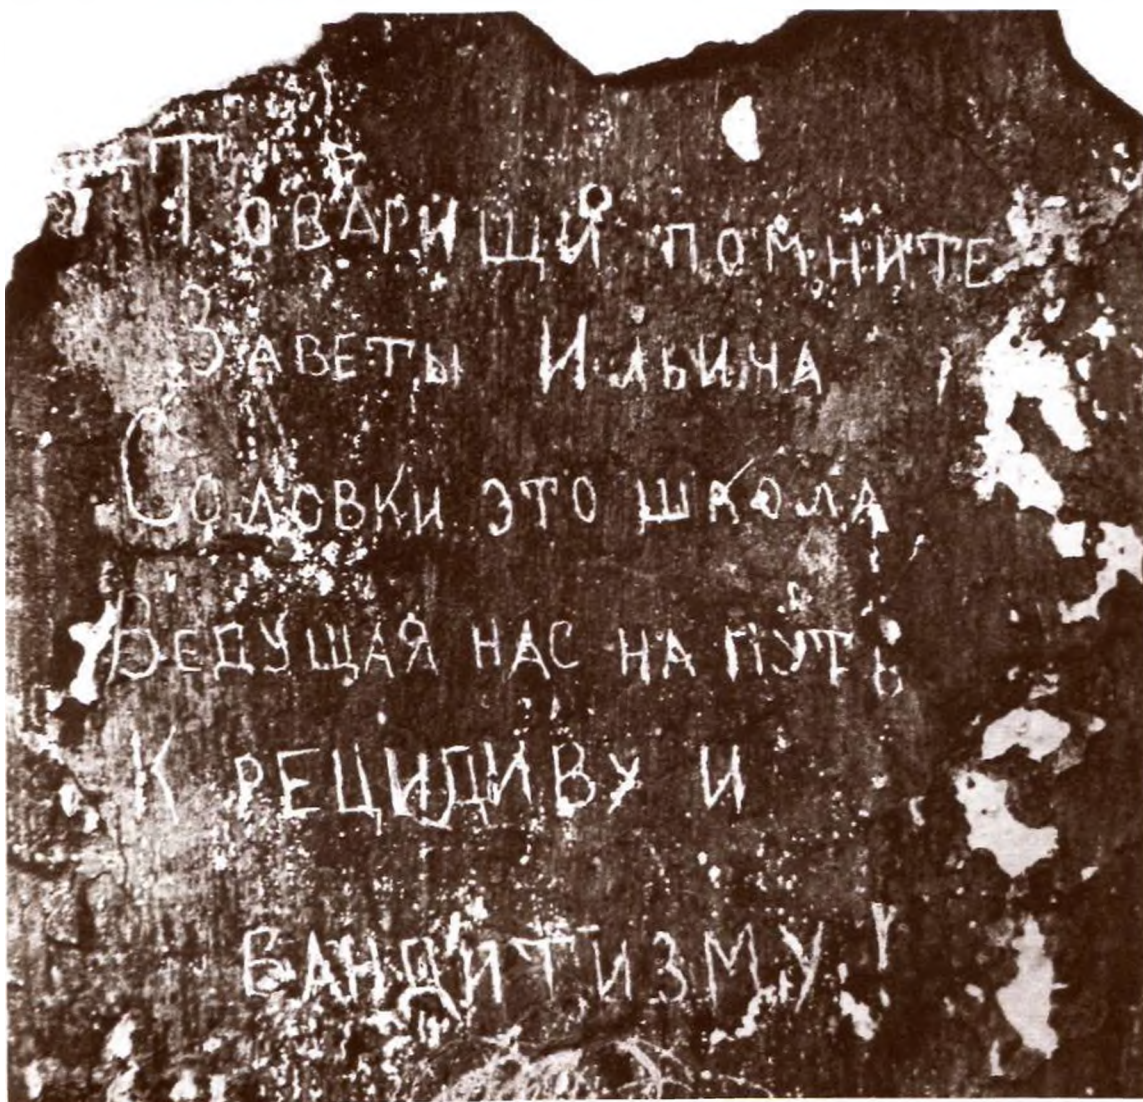 Товарищи помните
Заветы Ильича
Соловки это школа
Ведущая нас на путь
К рецидиву и
бандитизму!